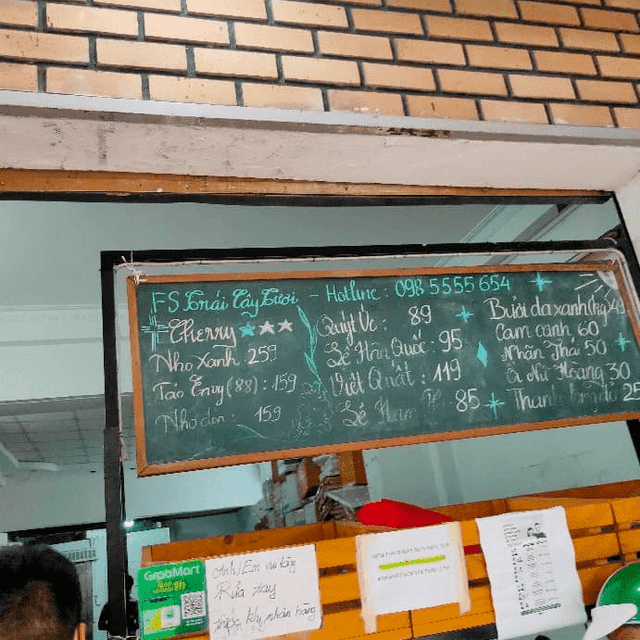 FS Trái Cây Tươi - Hotline: 098 5555 654
Cherry
Nho Xanh 259
Táo Envy (88): 159
Nho đen: 159
Quýt Úc: 89
Lê Hàn Quốc: 95
Việt Quất: 119
Lê Nam 85
Bưởi da xanh (kg)
Cam canh 60
Nhãn Thái 50
Ổi Nữ Hoàng 30
Thanh long đỏ 25
GrabMart
Anh/Em vui lòng
Rửa tay
trước khi nhận hàng